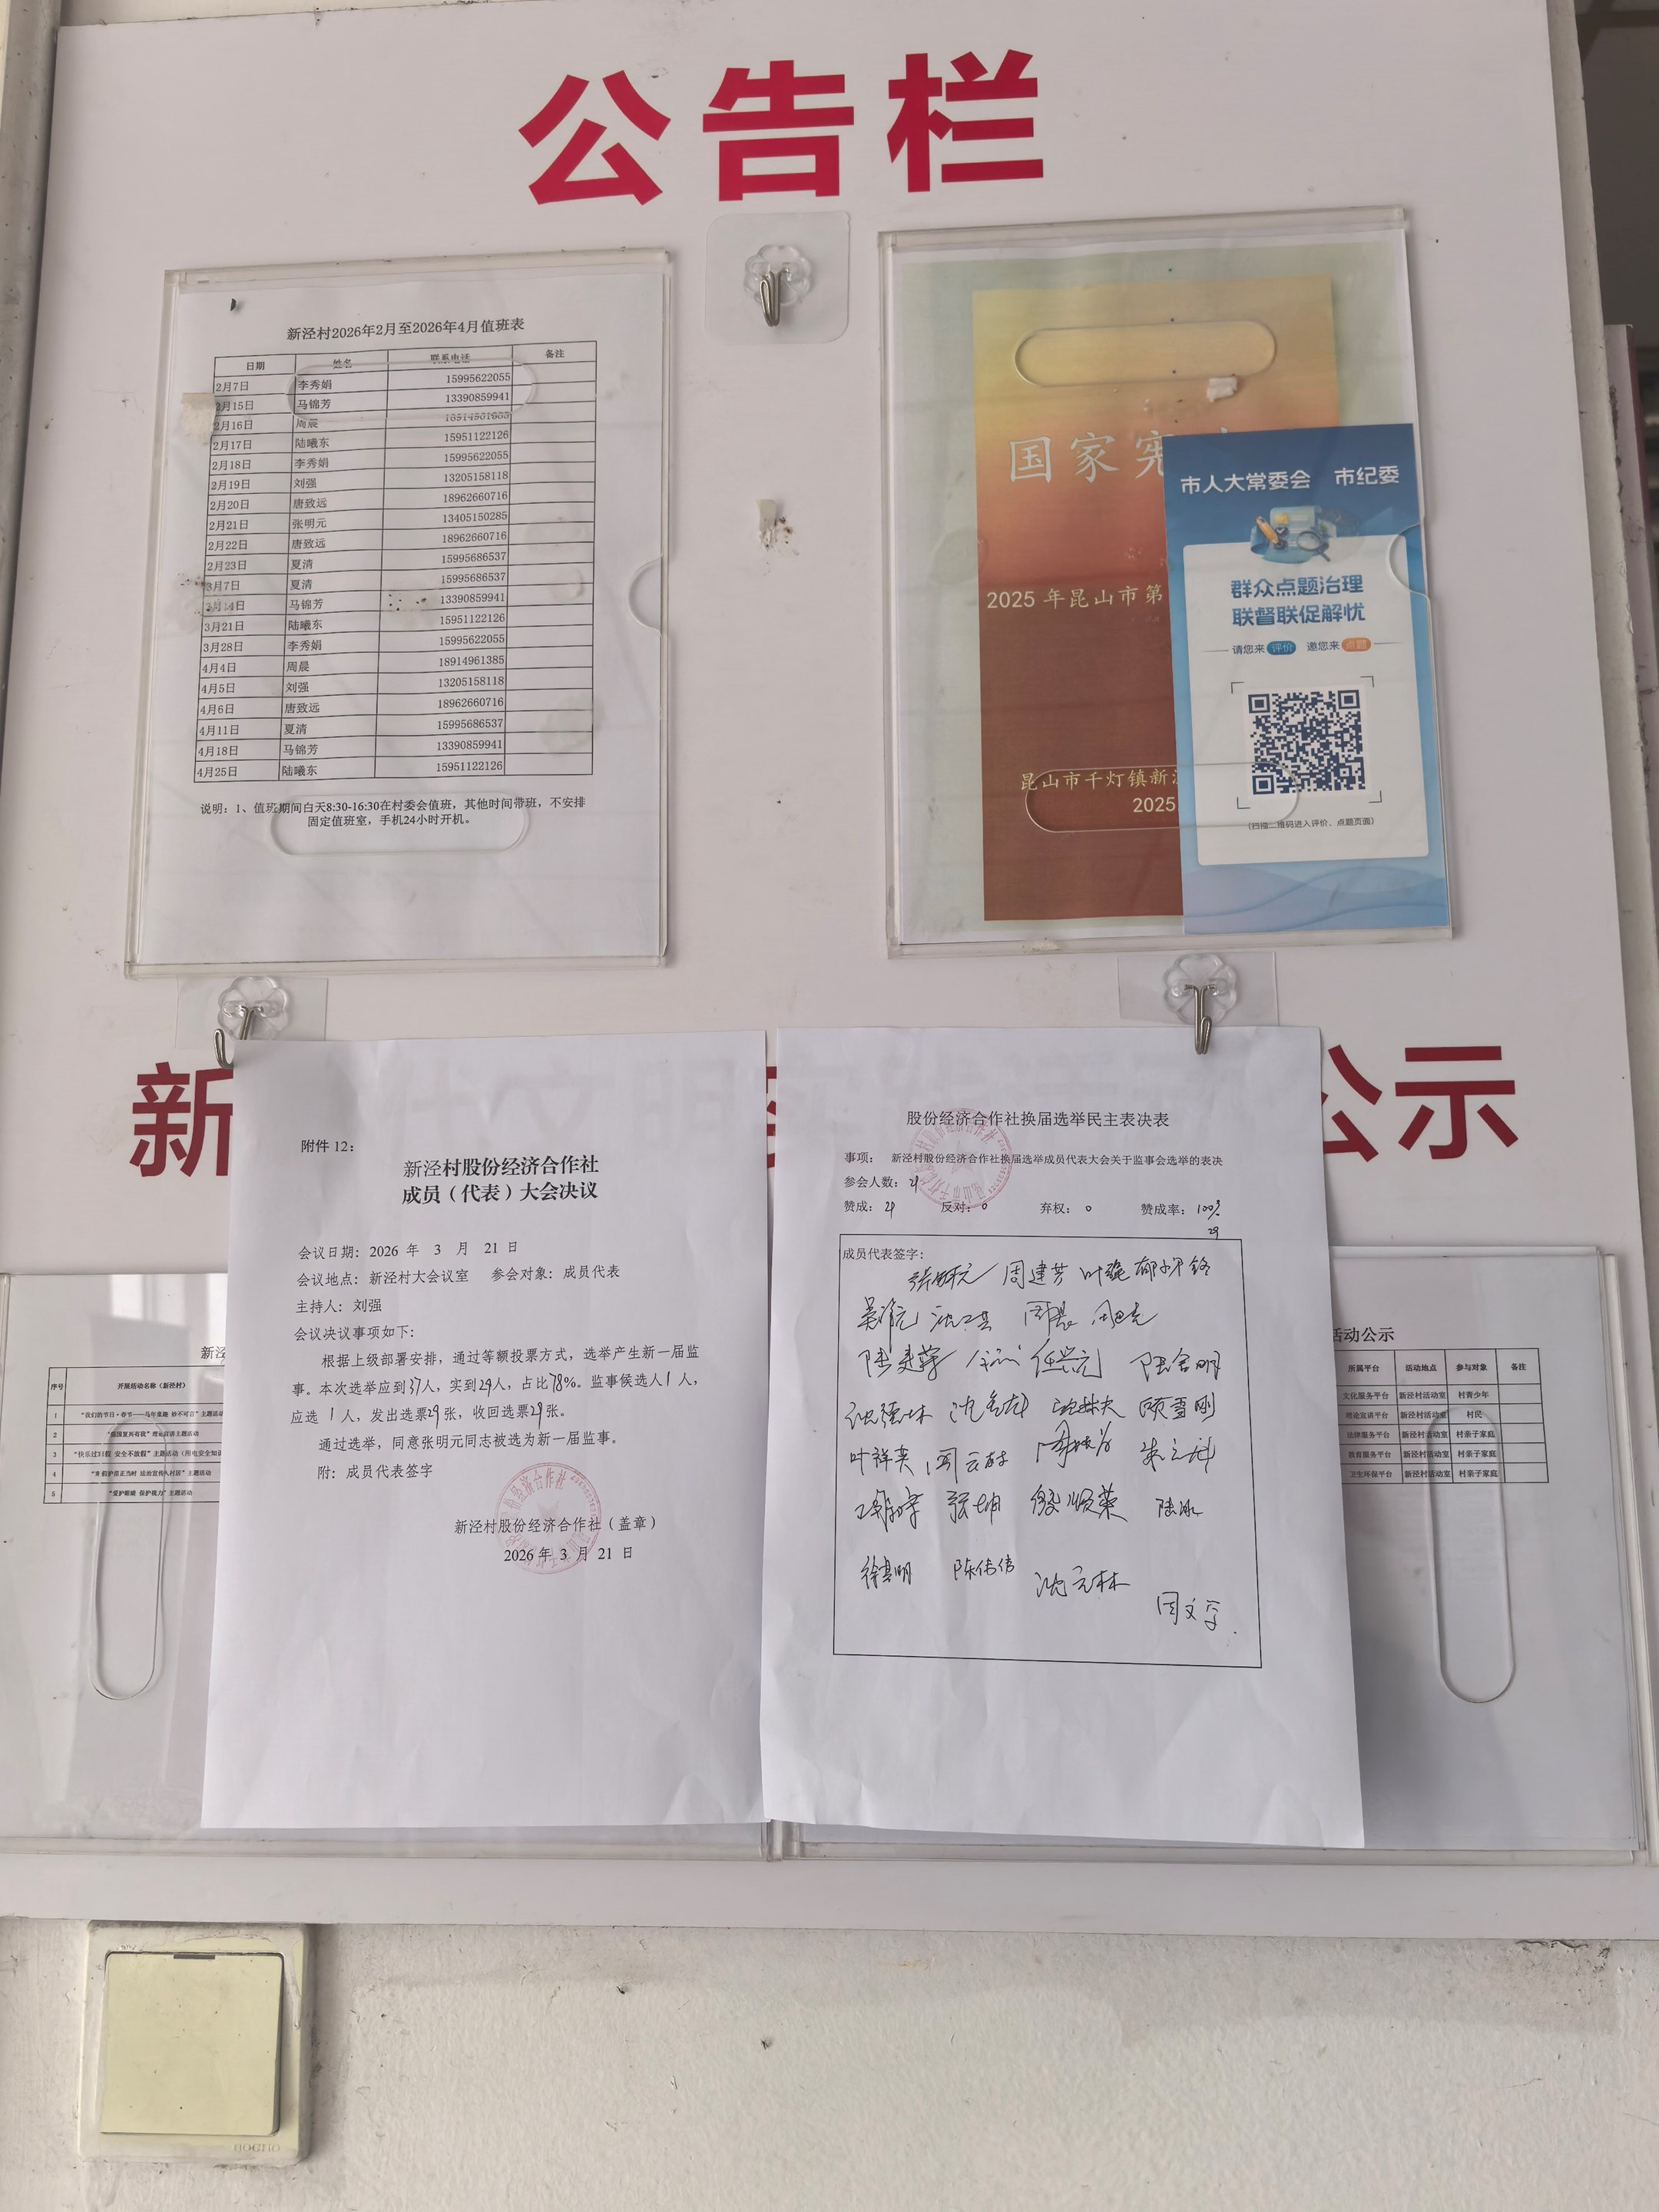 公告栏
新泾村2026年2月至2026年4月值班表
日期 姓名 联系电话 备注
2月7日 李秀娟 15995622055
2月15日 马锦芳 13390859941
2月16日 周晨
2月17日 陆曦东 15951122126
2月18日 李秀娟 15995622055
2月19日 刘强 13205158118
2月20日 唐致远 18962660716
2月21日 张明元 13405150285
2月22日 唐致远 18962660716
2月23日 夏清 15995686537
3月7日 夏清 15995686537
3月14日 马锦芳 13390859941
3月21日 陆曦东 15951122126
3月28日 李秀娟 15995622055
4月4日 周晨 18914961385
4月5日 刘强 13205158118
4月6日 唐致远 18962660716
4月11日 夏清 15995686537
4月18日 马锦芳 13390859941
4月25日 陆曦东 15951122126
说明：1、值班期间白天8:30-16:30在村委会值班，其他时间带班，不安排
固定值班室，手机24小时开机。
国家宪
2025 年昆山市第
昆山市千灯镇新
2025
市人大常委会 市纪委
群众点题治理
联督联促解忧
请您来 评价 邀您来 点题
(扫描二维码进入评价、点题页面)
新 公示
附件 12：
新泾村股份经济合作社
成员（代表）大会决议
会议日期：2026 年 3 月 21 日
会议地点：新泾村大会议室 参会对象：成员代表
主持人：刘强
会议决议事项如下：
根据上级部署安排，通过等额投票方式，选举产生新一届监
事。本次选举应到37人，实到29人，占比78%。监事候选人1人，
应选 1人，发出选票29张，收回选票29张。
通过选举，同意张明元同志被选为新一届监事。
附：成员代表签字
新泾村股份经济合作社（盖章）
2026 年 3 月 21 日
股份经济合作社换届选举民主表决表
事项： 新泾村股份经济合作社换届选举成员代表大会关于监事会选举的表决
参会人数：29
赞成：29 反对：0 弃权：0 赞成率：100%
29
成员代表签字：
张明元 周建芳
周晨
陆建萍 任兴元 陆舍明
顾雪刚
叶祥英 周云林
张坤 陆冰
徐其明 陈伟伟 沈元林
周文学
新泾
序号 开展活动名称（新泾村）
1 “我们的节日·春节——马年童趣 妙不可言”主题活动
2 “强国复兴有我”理论宣讲主题活动
3
4
5 “爱护眼睛 保护视力”主题活动
活动公示
所属平台 活动地点 参与对象 备注
文化服务平台 新泾村活动室 村青少年
理论宣讲平台 新泾村活动室 村民
法律服务平台 新泾村活动室 村亲子家庭
教育服务平台 新泾村活动室 村亲子家庭
卫生环保平台 新泾村活动室 村亲子家庭